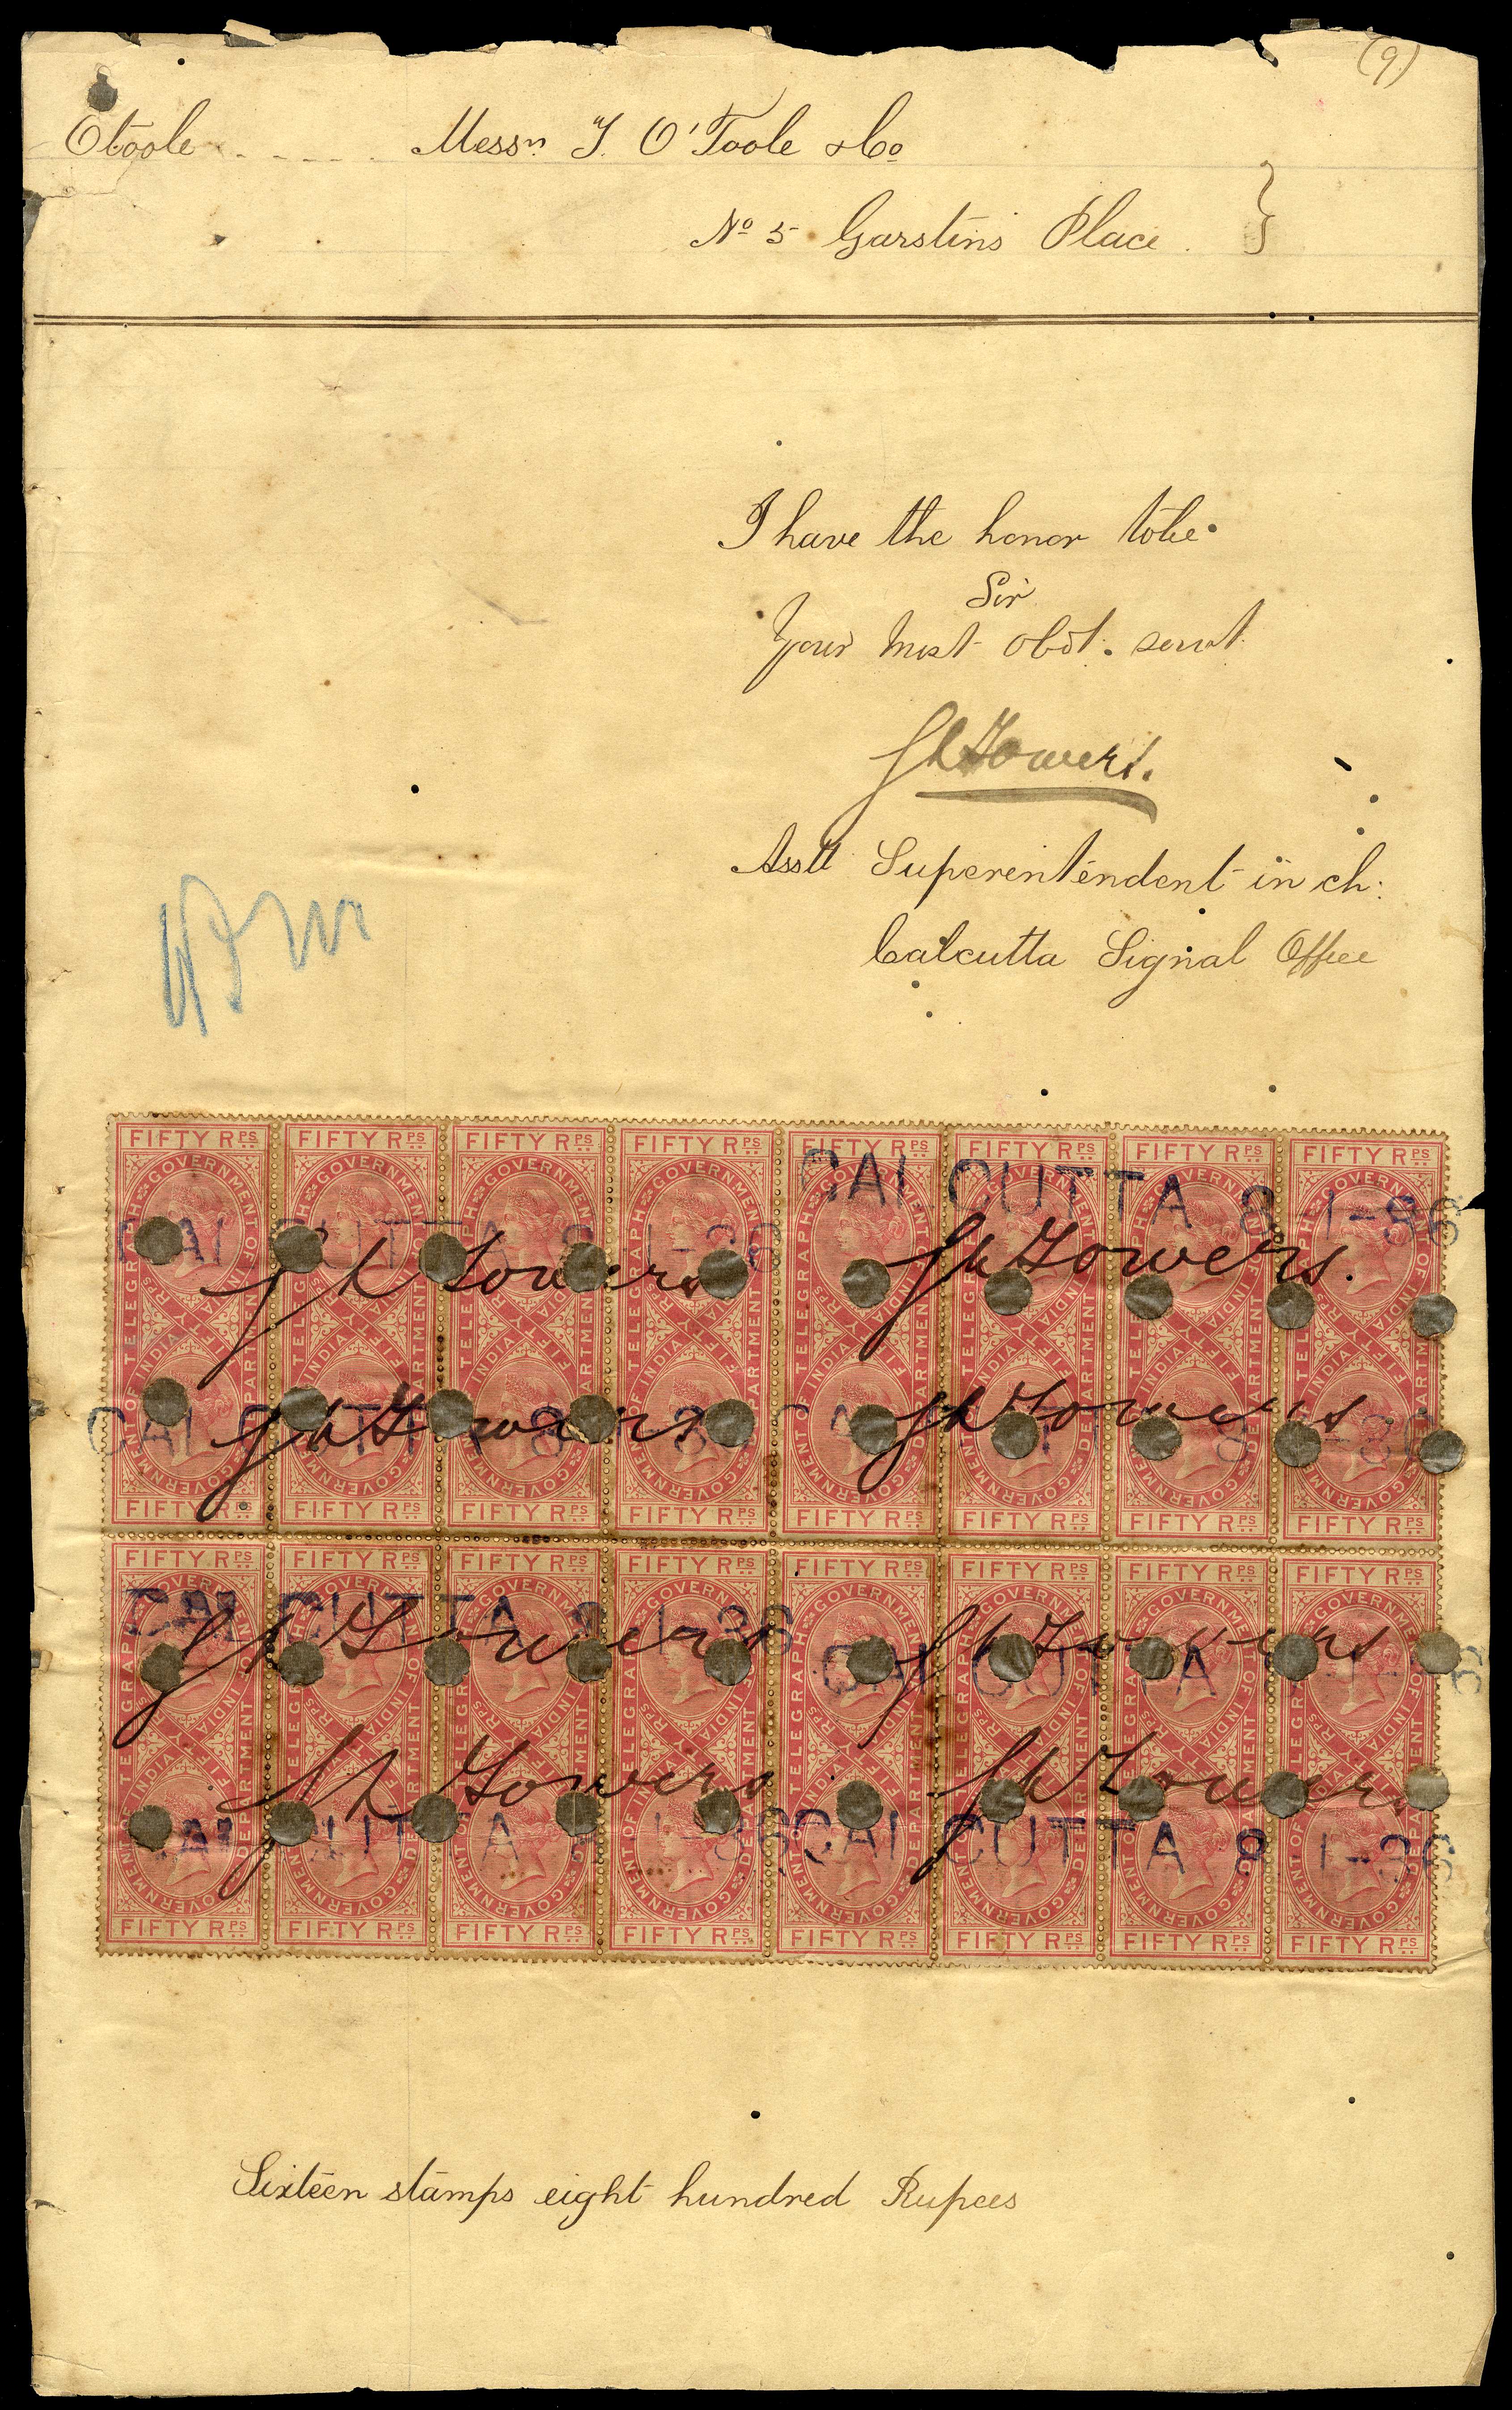 (9)
Otoole . - - - - . Messrs. J. O'Toole & Co
No 5 Garstin's Place
I have the honor to be
Sir
Your Most Obdt. servt.
Asstt Superintendent in ch:
Calcutta Signal Office
FIFTY RPS FIFTY RPS FIFTY RPS FIFTY RPS FIFTY RPS FIFTY RPS FIFTY RPS FIFTY RPS
GOVERNMENT OF INDIA TELEGRAPH DEPARTMENT
CALCUTTA 8 1-86 CALCUTTA 8 1-86
Towers Towers.
CALCUTTA 8 1-86 CALCUTTA 8 1-86
Towers Towers
FIFTY RPS FIFTY RPS FIFTY RPS FIFTY RPS FIFTY RPS FIFTY RPS FIFTY RPS FIFTY RPS
FIFTY RPS FIFTY RPS FIFTY RPS FIFTY RPS FIFTY RPS FIFTY RPS FIFTY RPS FIFTY RPS
GOVERNMENT OF INDIA TELEGRAPH DEPARTMENT
CALCUTTA 8 1-86 CALCUTTA
Towers Towers
Towers Towers
CALCUTTA 1-86 CALCUTTA 8 1-86
FIFTY RPS FIFTY RPS FIFTY RPS FIFTY RPS FIFTY RPS FIFTY RPS FIFTY RPS FIFTY RPS
Sixteen stamps eight hundred Rupees